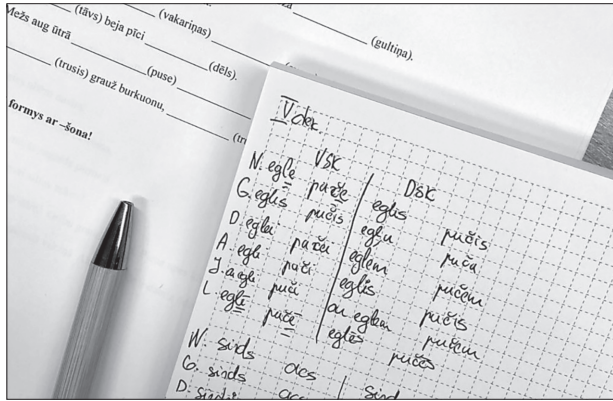 (vakariņas)
(gultiņa).
(tāvs) beja pīci (dēls).
Mežs aug ūtrā (puse)
(trusis) grauž burkuonu,
formys ar –šona!
V. dek.
VSK DSK
N. egle puče eglis pučis
G. eglis pučis egļu puču
D. eglei pučei eglem pučem
A. egli puči eglis pučis
I. ar egli puči ar eglem pučem
L. eglē pučē eglēs pučēs
N. sirds acs
G. sirds acs
D. sirdei